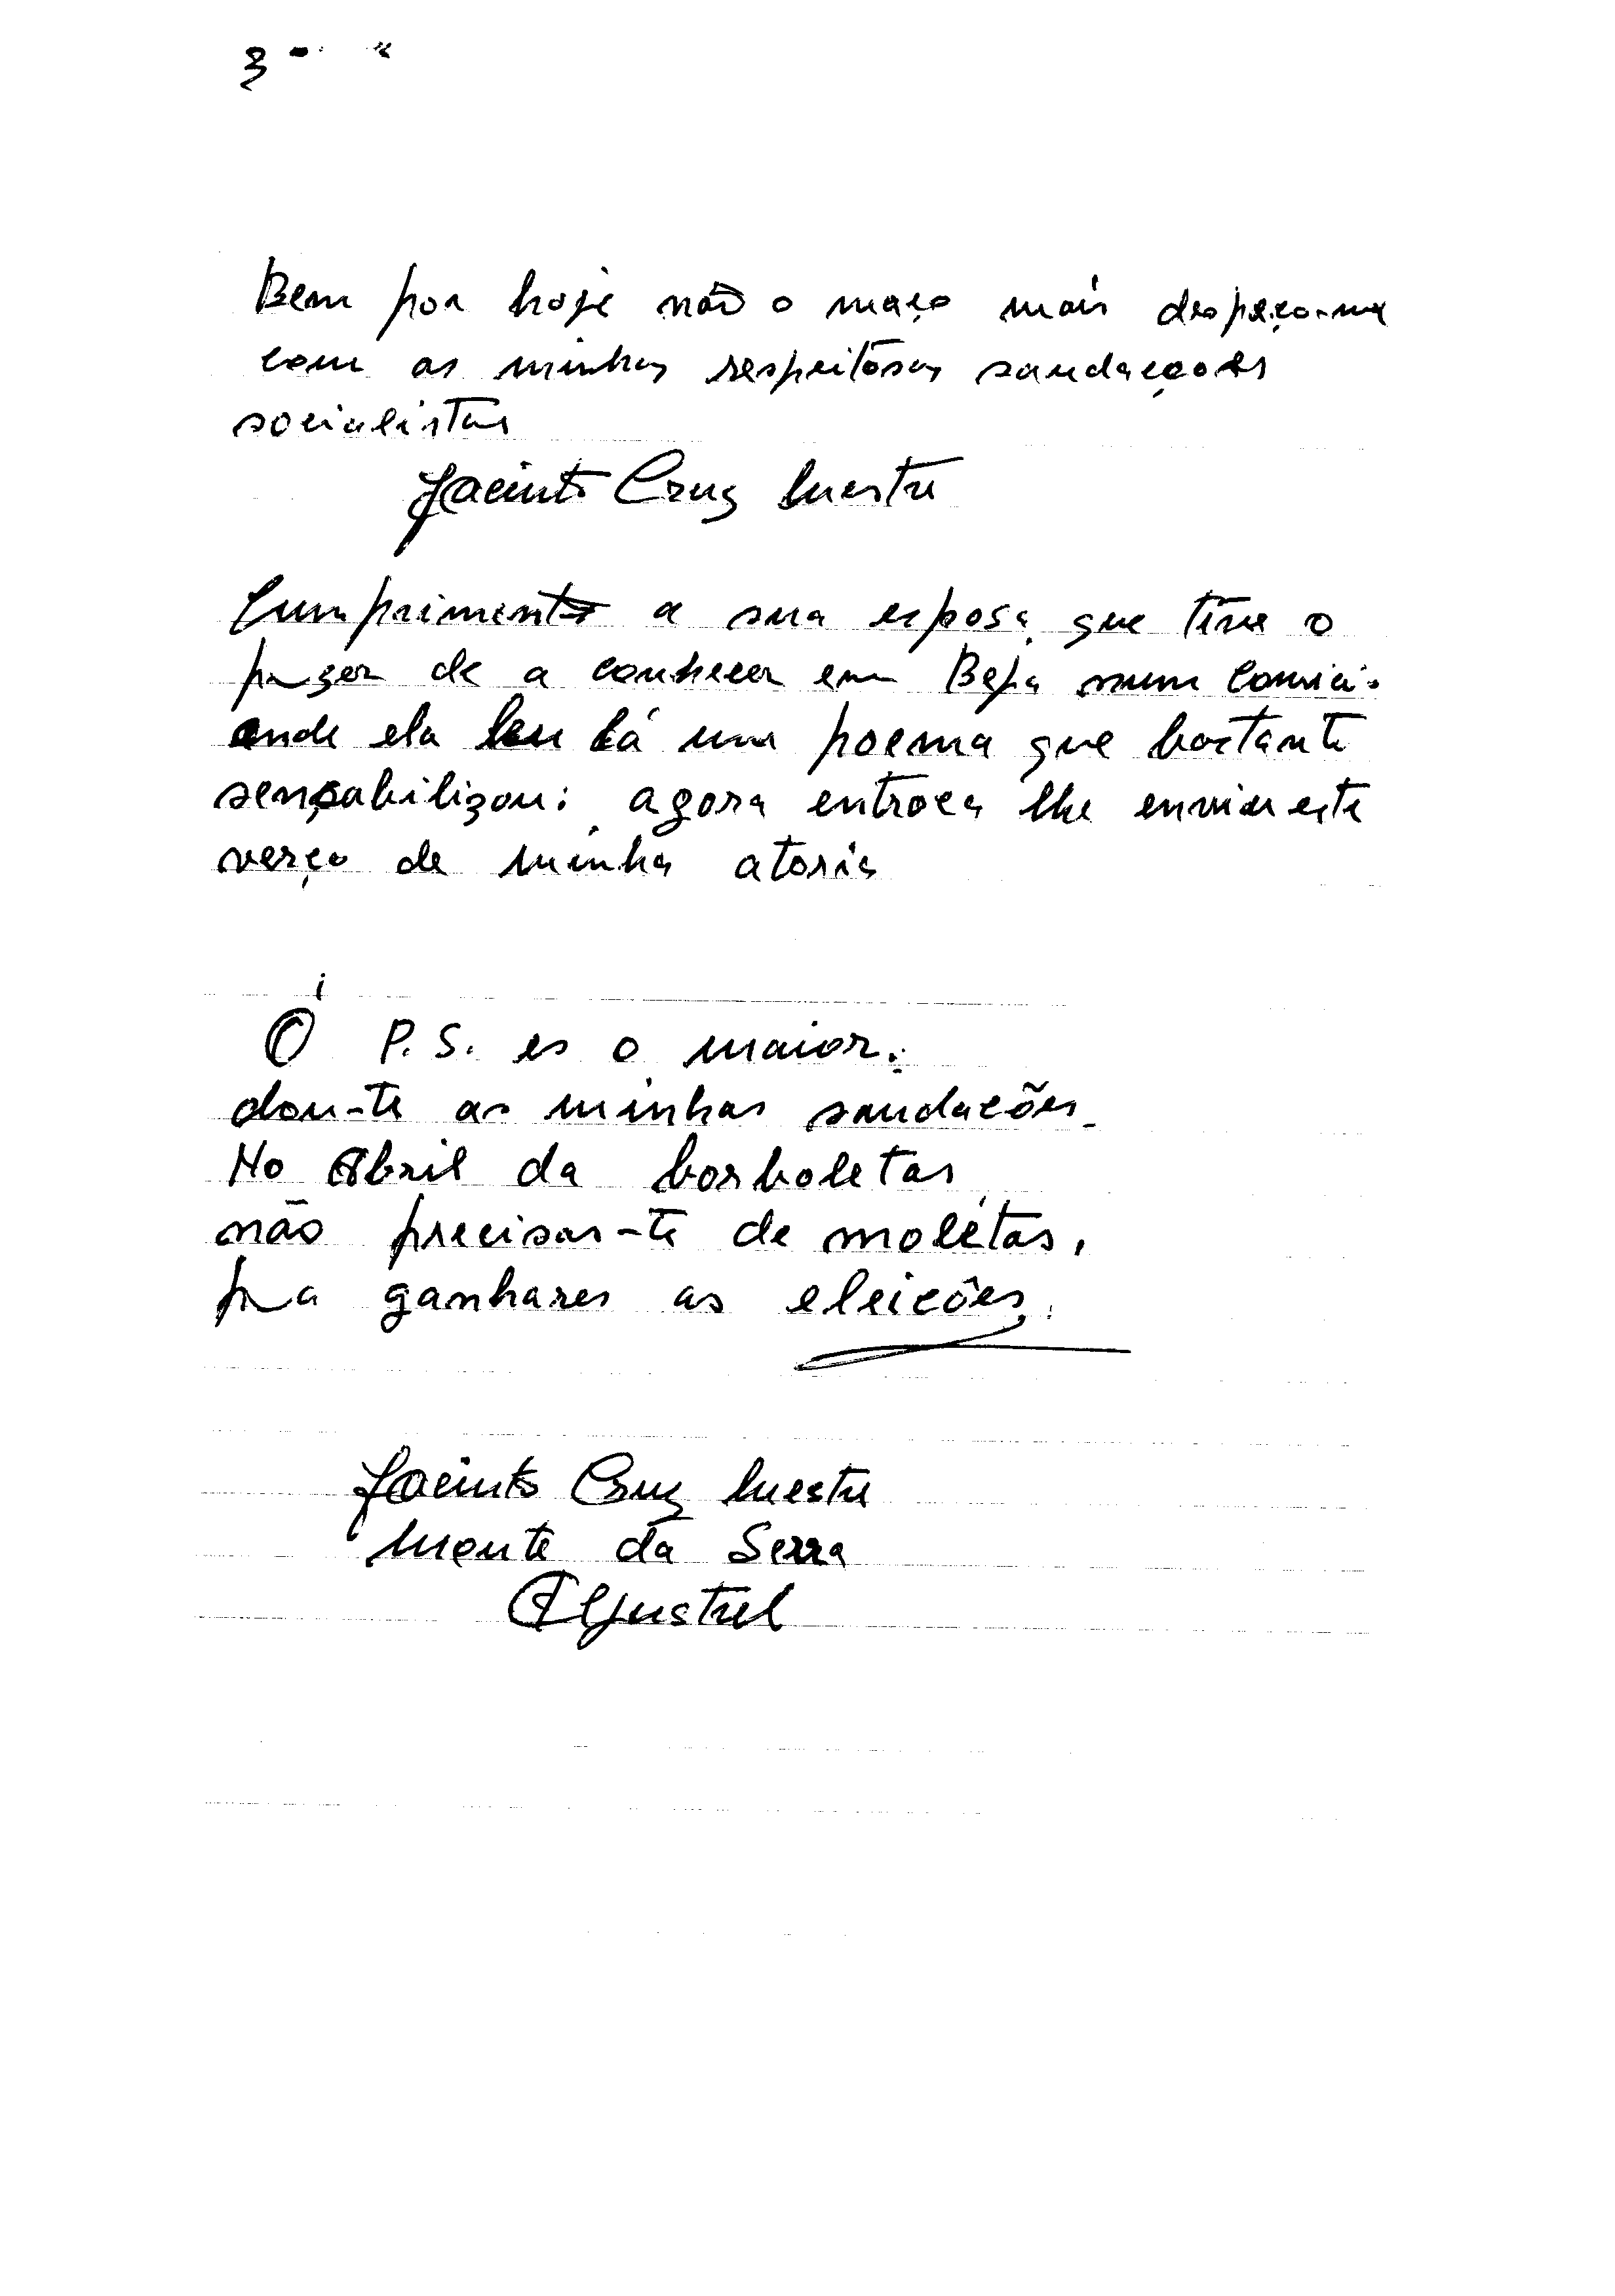 3
Bem por hoje não o maço mais despeço-me
com as minhas respeitósas saudaçoes
socialistas
Jacinto Cruz Mestre
Cumprimentos a sua esposa que tive o
prazer de a conhecer em Beja num comici.
onde ela leu lá um poema que bastante
sençabilizou: agora entroca lhe enviar este
verço de minha atoria
Ó P.S. es o maior.
dou-te as minhas saudacões
No Abril da borboletas
não precisas-te de molétas,
pra ganhares as eleicões.
Jacinto Cruz Mestre
Monte da Serra
Aljustrel